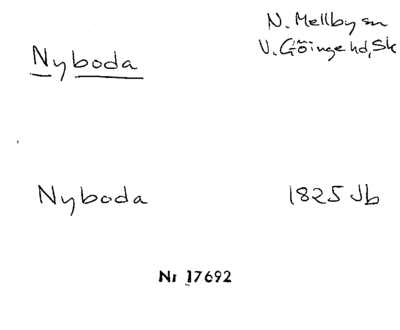 N. Mellby sn
Nyboda V. Göinge hd, Sk
Nyboda 1825 Jb
Nr 17692